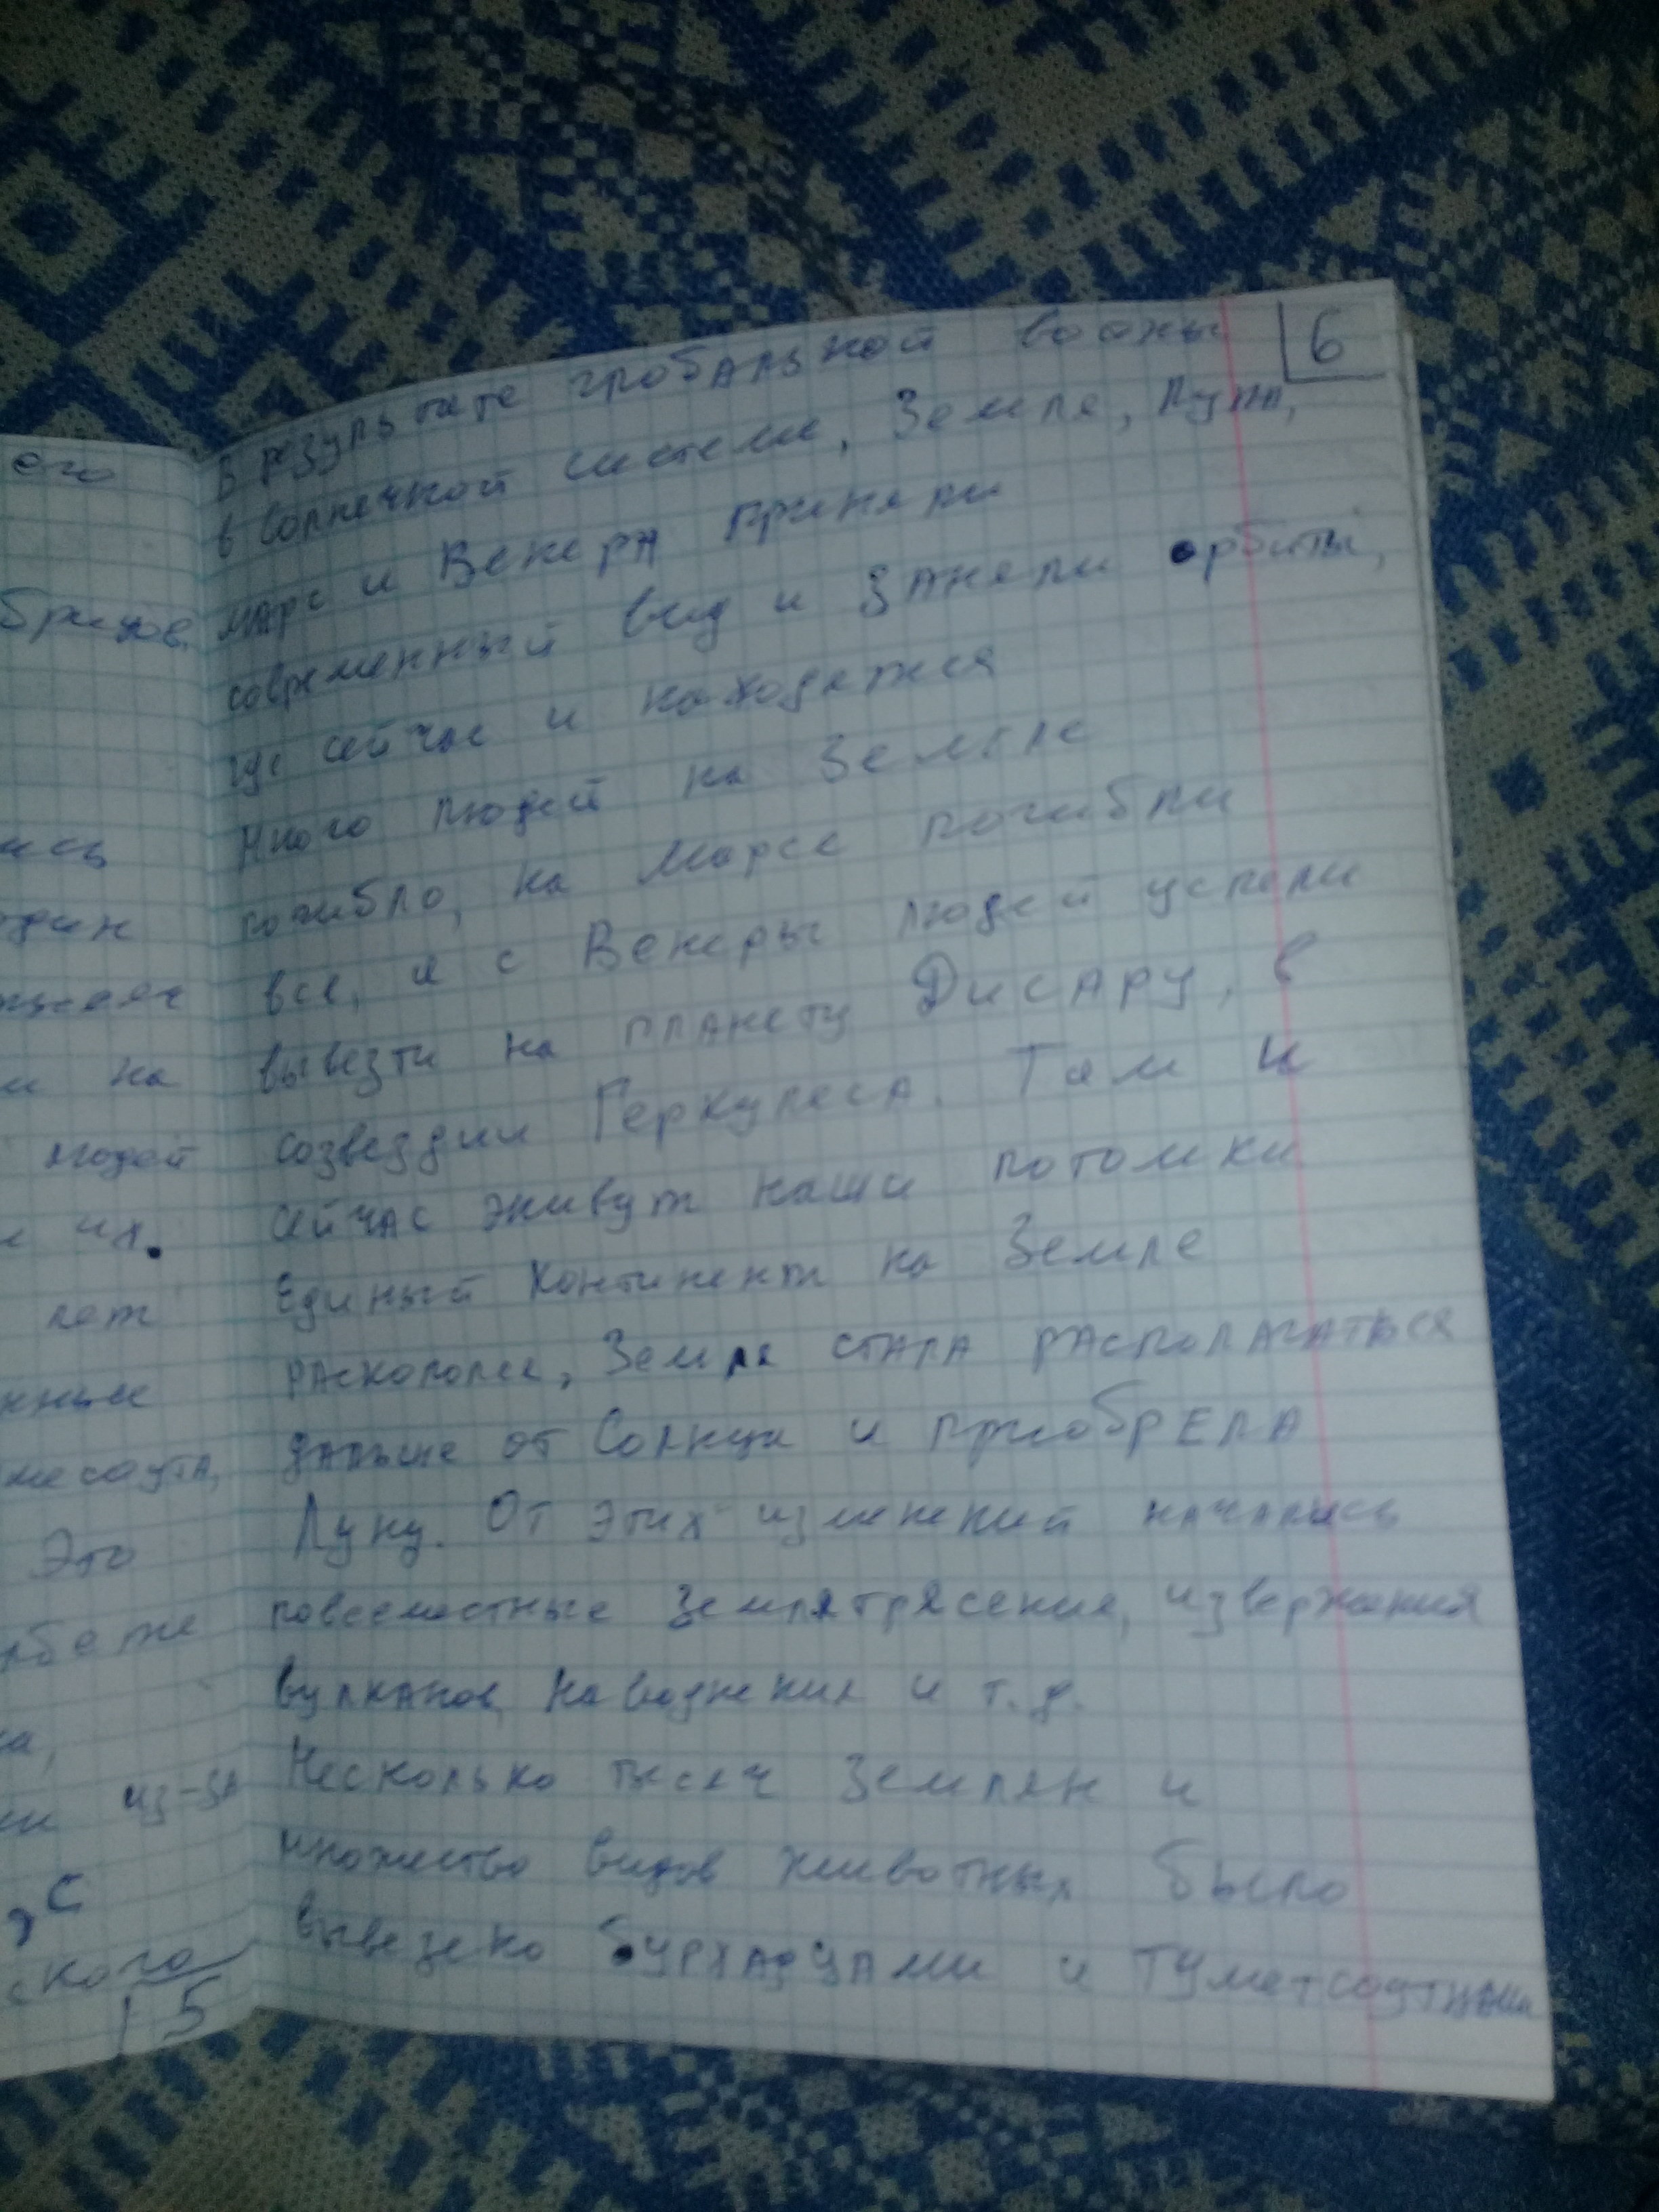 его
бридов.
ись
один
тысяч
и на
людей
и их.
лет
нные
месаута,
Это
же
ка,
из-за
, с
ского
15
6
В результате гробальной войны
в солнечной системе, Земля, Луна,
марс и Венера приняли
современный вид и заняли орбиты,
где сейчас и находятся
Много людей на Земле
погибло, на Марсе погибли
все, а с Венеры людей успели
вывезти на планету Дисару, в
созвездии Геркулеса. Там и
сейчас живут наши потомки
Единый континент на Земле
раскололся, Земля стала располагаться
дальше от Солнца и приобрела
Луну. От этих изменений начались
повсеместные землятрясения, извержения
вулканов, наводнения и т.д.
Несколько тысяч Землян и
множество видов животных было
вывезено бурхадцами и